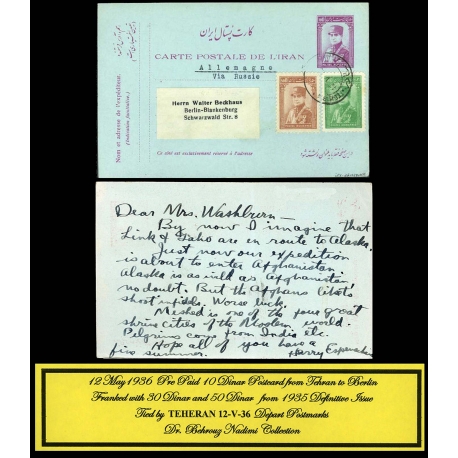 کارت پستال ایران
CARTE POSTALE DE L'IRAN
Allemagne
Via Russie
Nom et adresse de l'expéditeur.
(Indication facultative.)
Herrn Walter Beckhaus
Berlin-Blankenburg
Schwarzwald Str. 8
Ce côté est exclusivement réservé à l'adresse
Dear Mrs. Washburn—
By now I imagine that
Link & Taho are en route to Alaska.
Just now our expedition
is about to enter Afghanistan
Alaska is as wild as Afghanistan
no doubt. But the Afghans
shoot infidels. Worse luck.
Meshed is one of the four great
shrine cities of the Moslem world.
Pilgrims come from India etc.
Hope all of you have a
fine summer. Harry
12 May 1936 Pre Paid 10 Dinar Postcard from Tehran to Berlin
Franked with 30 Dinar and 50 Dinar from 1935 Definitive Issue
Tied by TEHERAN 12-V-36 Depart Postmarks
Dr. Behrouz Nadimi Collection